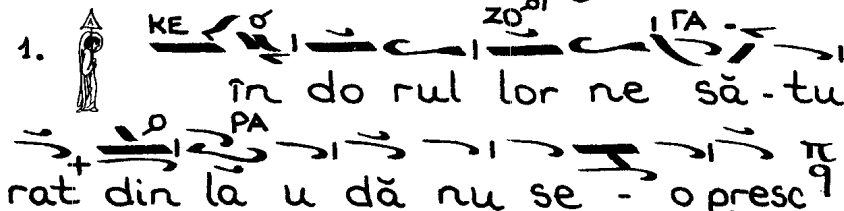 KE ZO ΓΑ
1. în do rul lor ne să-tu
PA π q
rat din la u dă nu se - o presc